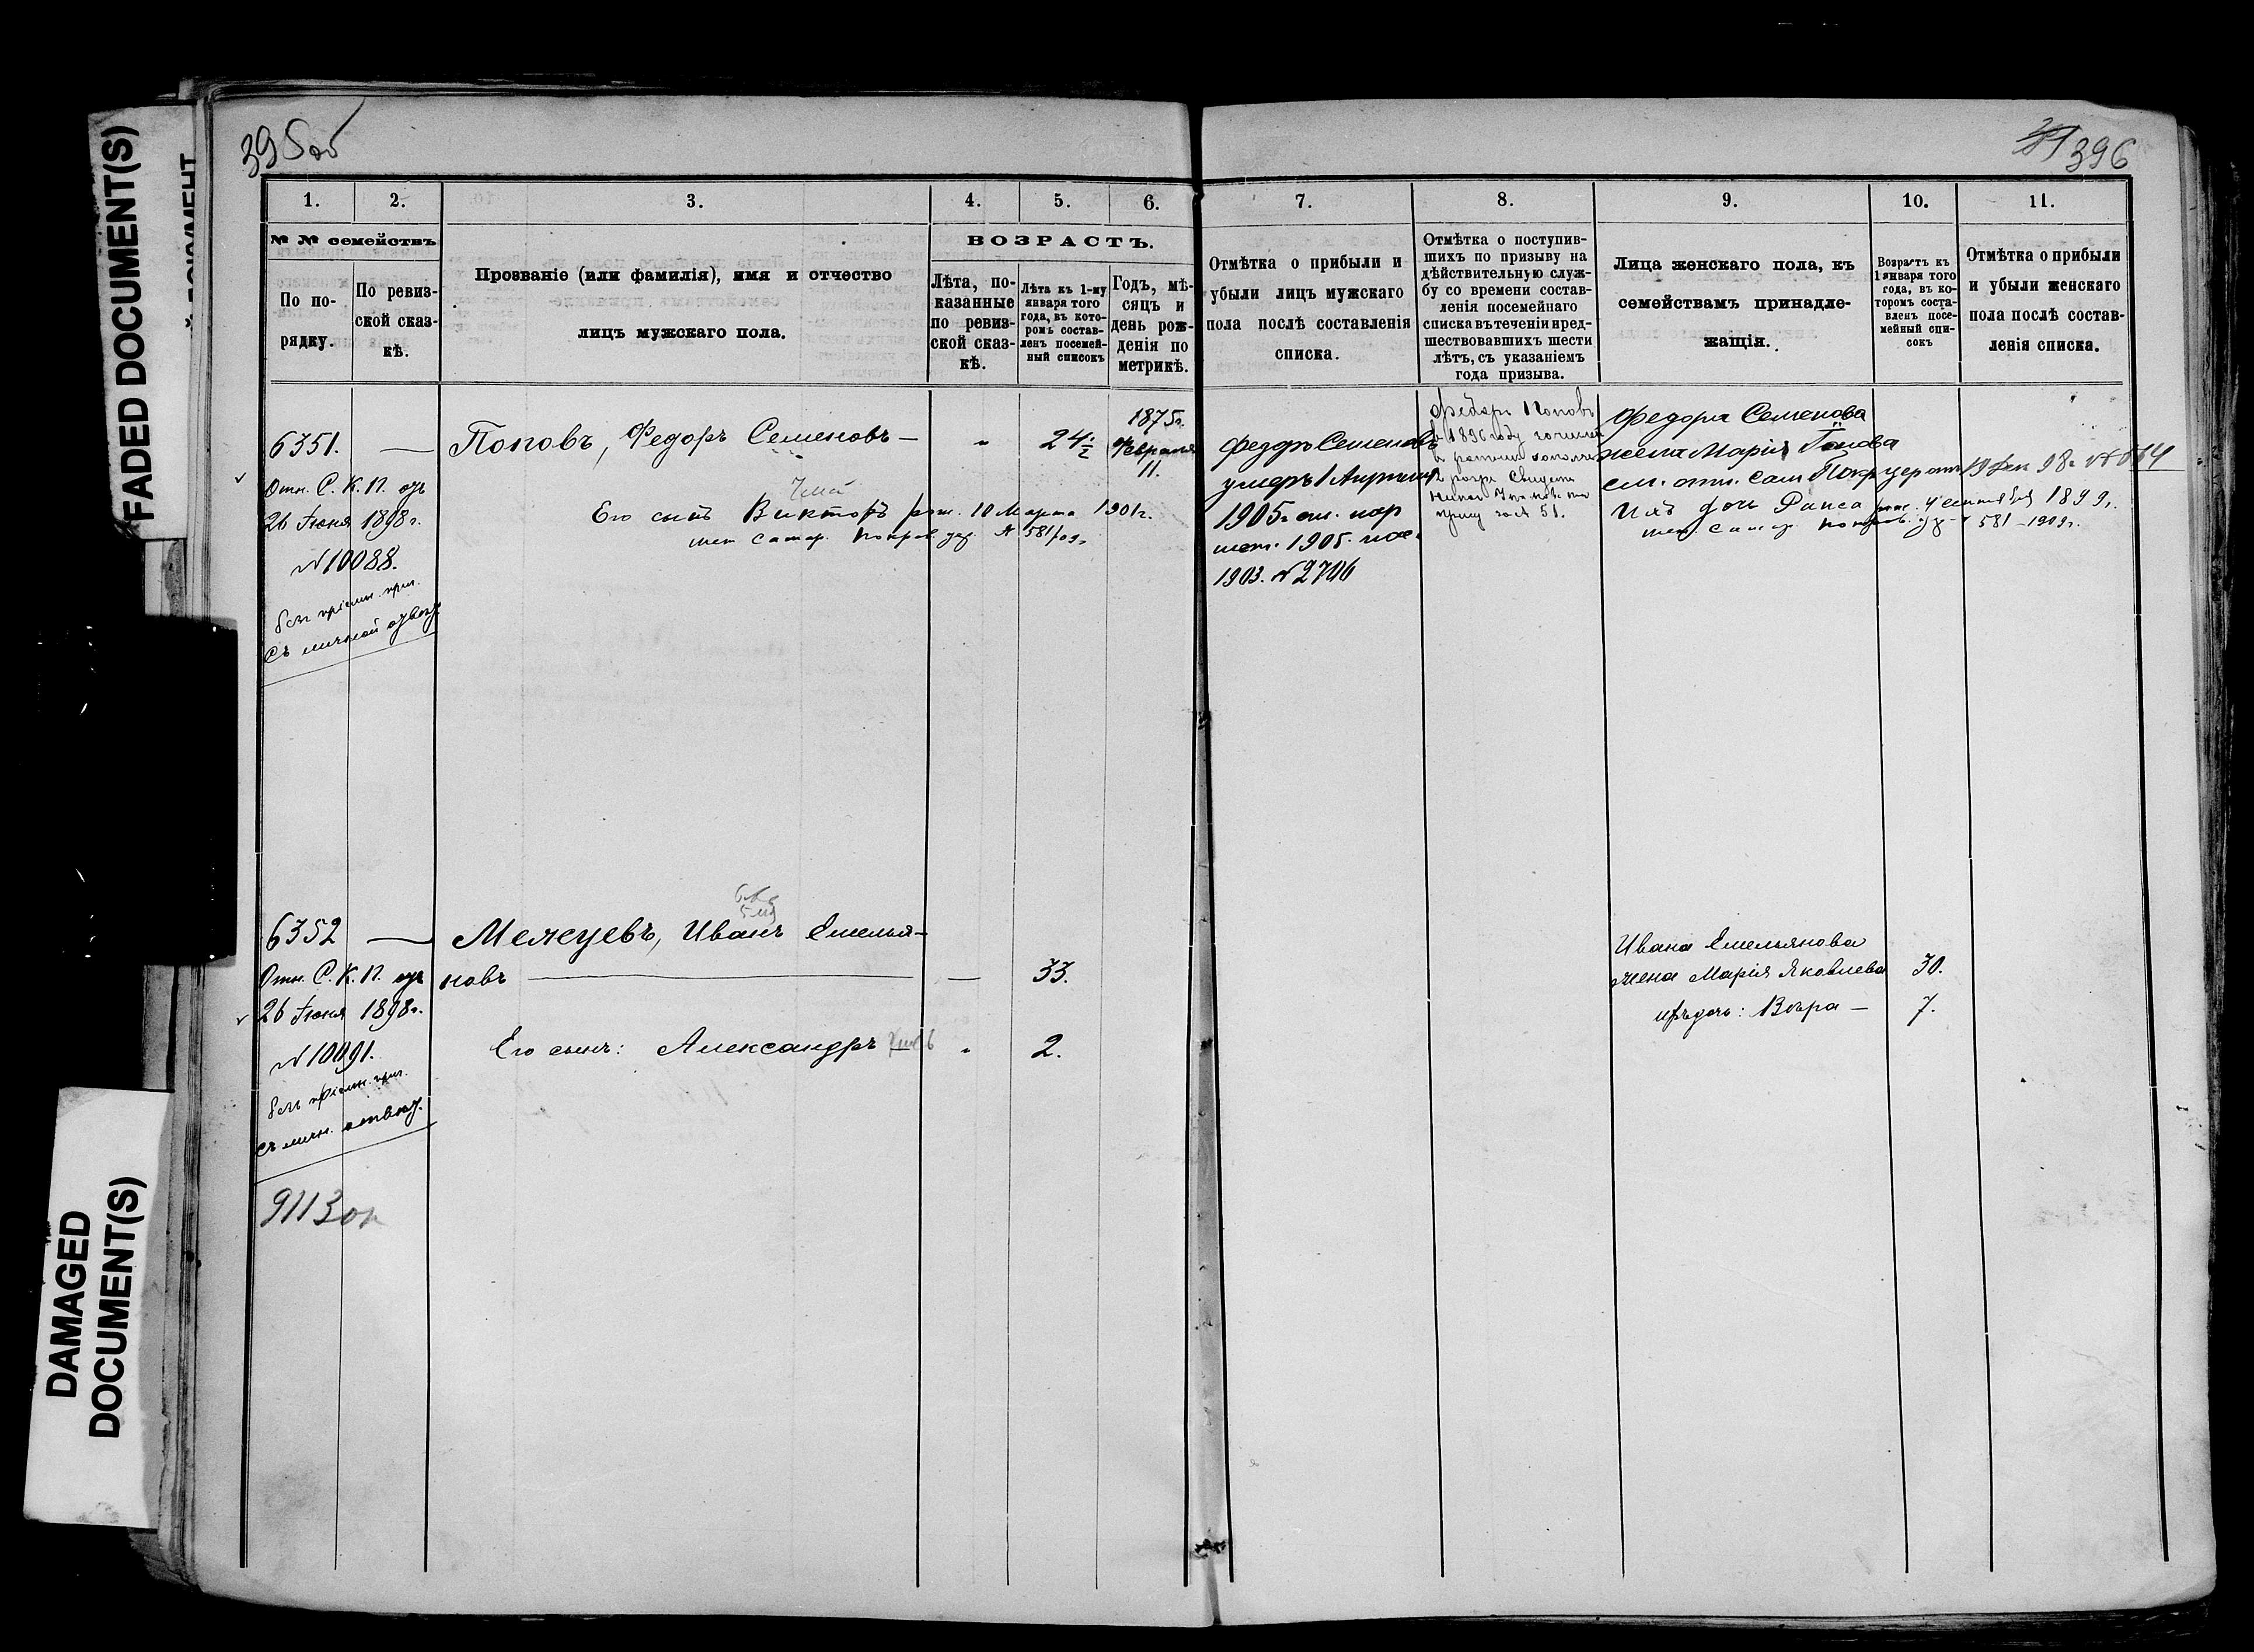 FADED DOCUMENT(S)
DAMAGED
DOCUMENT(S)
395об
396
1.
2.
3.
4.
5.
6.
7.
8.
9.
10.
11.
№ № семействъ
По по-
рядку.
По ревиз-
ской сказ-
кѣ.
Прозваніе (или фамилія), имя и отчество
лицъ мужскаго пола.
ВОЗРАСТЪ.
Лѣта, по-
казанные
по ревиз-
ской сказ-
кѣ.
Лѣта къ 1-му
января того
года, въ кото-
ромъ состав-
ленъ посемей-
ный списокъ
Годъ, мѣ-
сяцъ и
день рож-
денія по
метрикѣ.
Отмѣтка о прибыли и
убыли лицъ мужскаго
пола послѣ составленія
списка.
Отмѣтка о поступив-
шихъ по призыву на
дѣйствительную служ-
бу со времени состав-
ленія посемейнаго
списка въ теченіи пред-
шествовавшихъ шести
лѣтъ, съ указаніемъ
года призыва.
Лица женскаго пола, къ
семействамъ принадле-
жащія.
Возрастъ къ
1 января того
года, въ ко-
торомъ соста-
вленъ посе-
мейный спи-
сокъ
Отмѣтка о прибыли
и убыли женскаго
пола послѣ состав-
ленія списка.
6351. —
Отн. С. К. П. отъ
26 Іюня 1898 г.
№ 10088.
безъ пріемн. приг.
съ личной отвѣт.
Поповъ, Федоръ Семеновъ —
24 1/2
1875 г.
Февраля
11.
Его сынъ Викторъ рож. 10 Марта 1901 г.
мет Самар. Покров. № 581/09 г.
Федоръ Семеновъ
умеръ 1 Апрѣля
1905 г.
1905.
1903. № 2706
Федоръ Поповъ
въ 1896 году зачисленъ
51.
Федора Семенова
жена Марія
Ихъ дочь Раиса рож. 4 сентября 1899 г.
мет. Самар. Покров. № 581 – 1909 г.
6352 —
Отн. С. К. П. отъ
26 Іюня 1898 г.
№ 10091.
безъ пріемн. приг.
съ личн. отвѣт.
9113
Межуевъ, Иванъ Емелья-
новъ — — 33.
Его сынъ: Александръ — " 2.
Ивана Емельянова
жена Марія Яковлева 30.
дочь: Вѣра — 7.